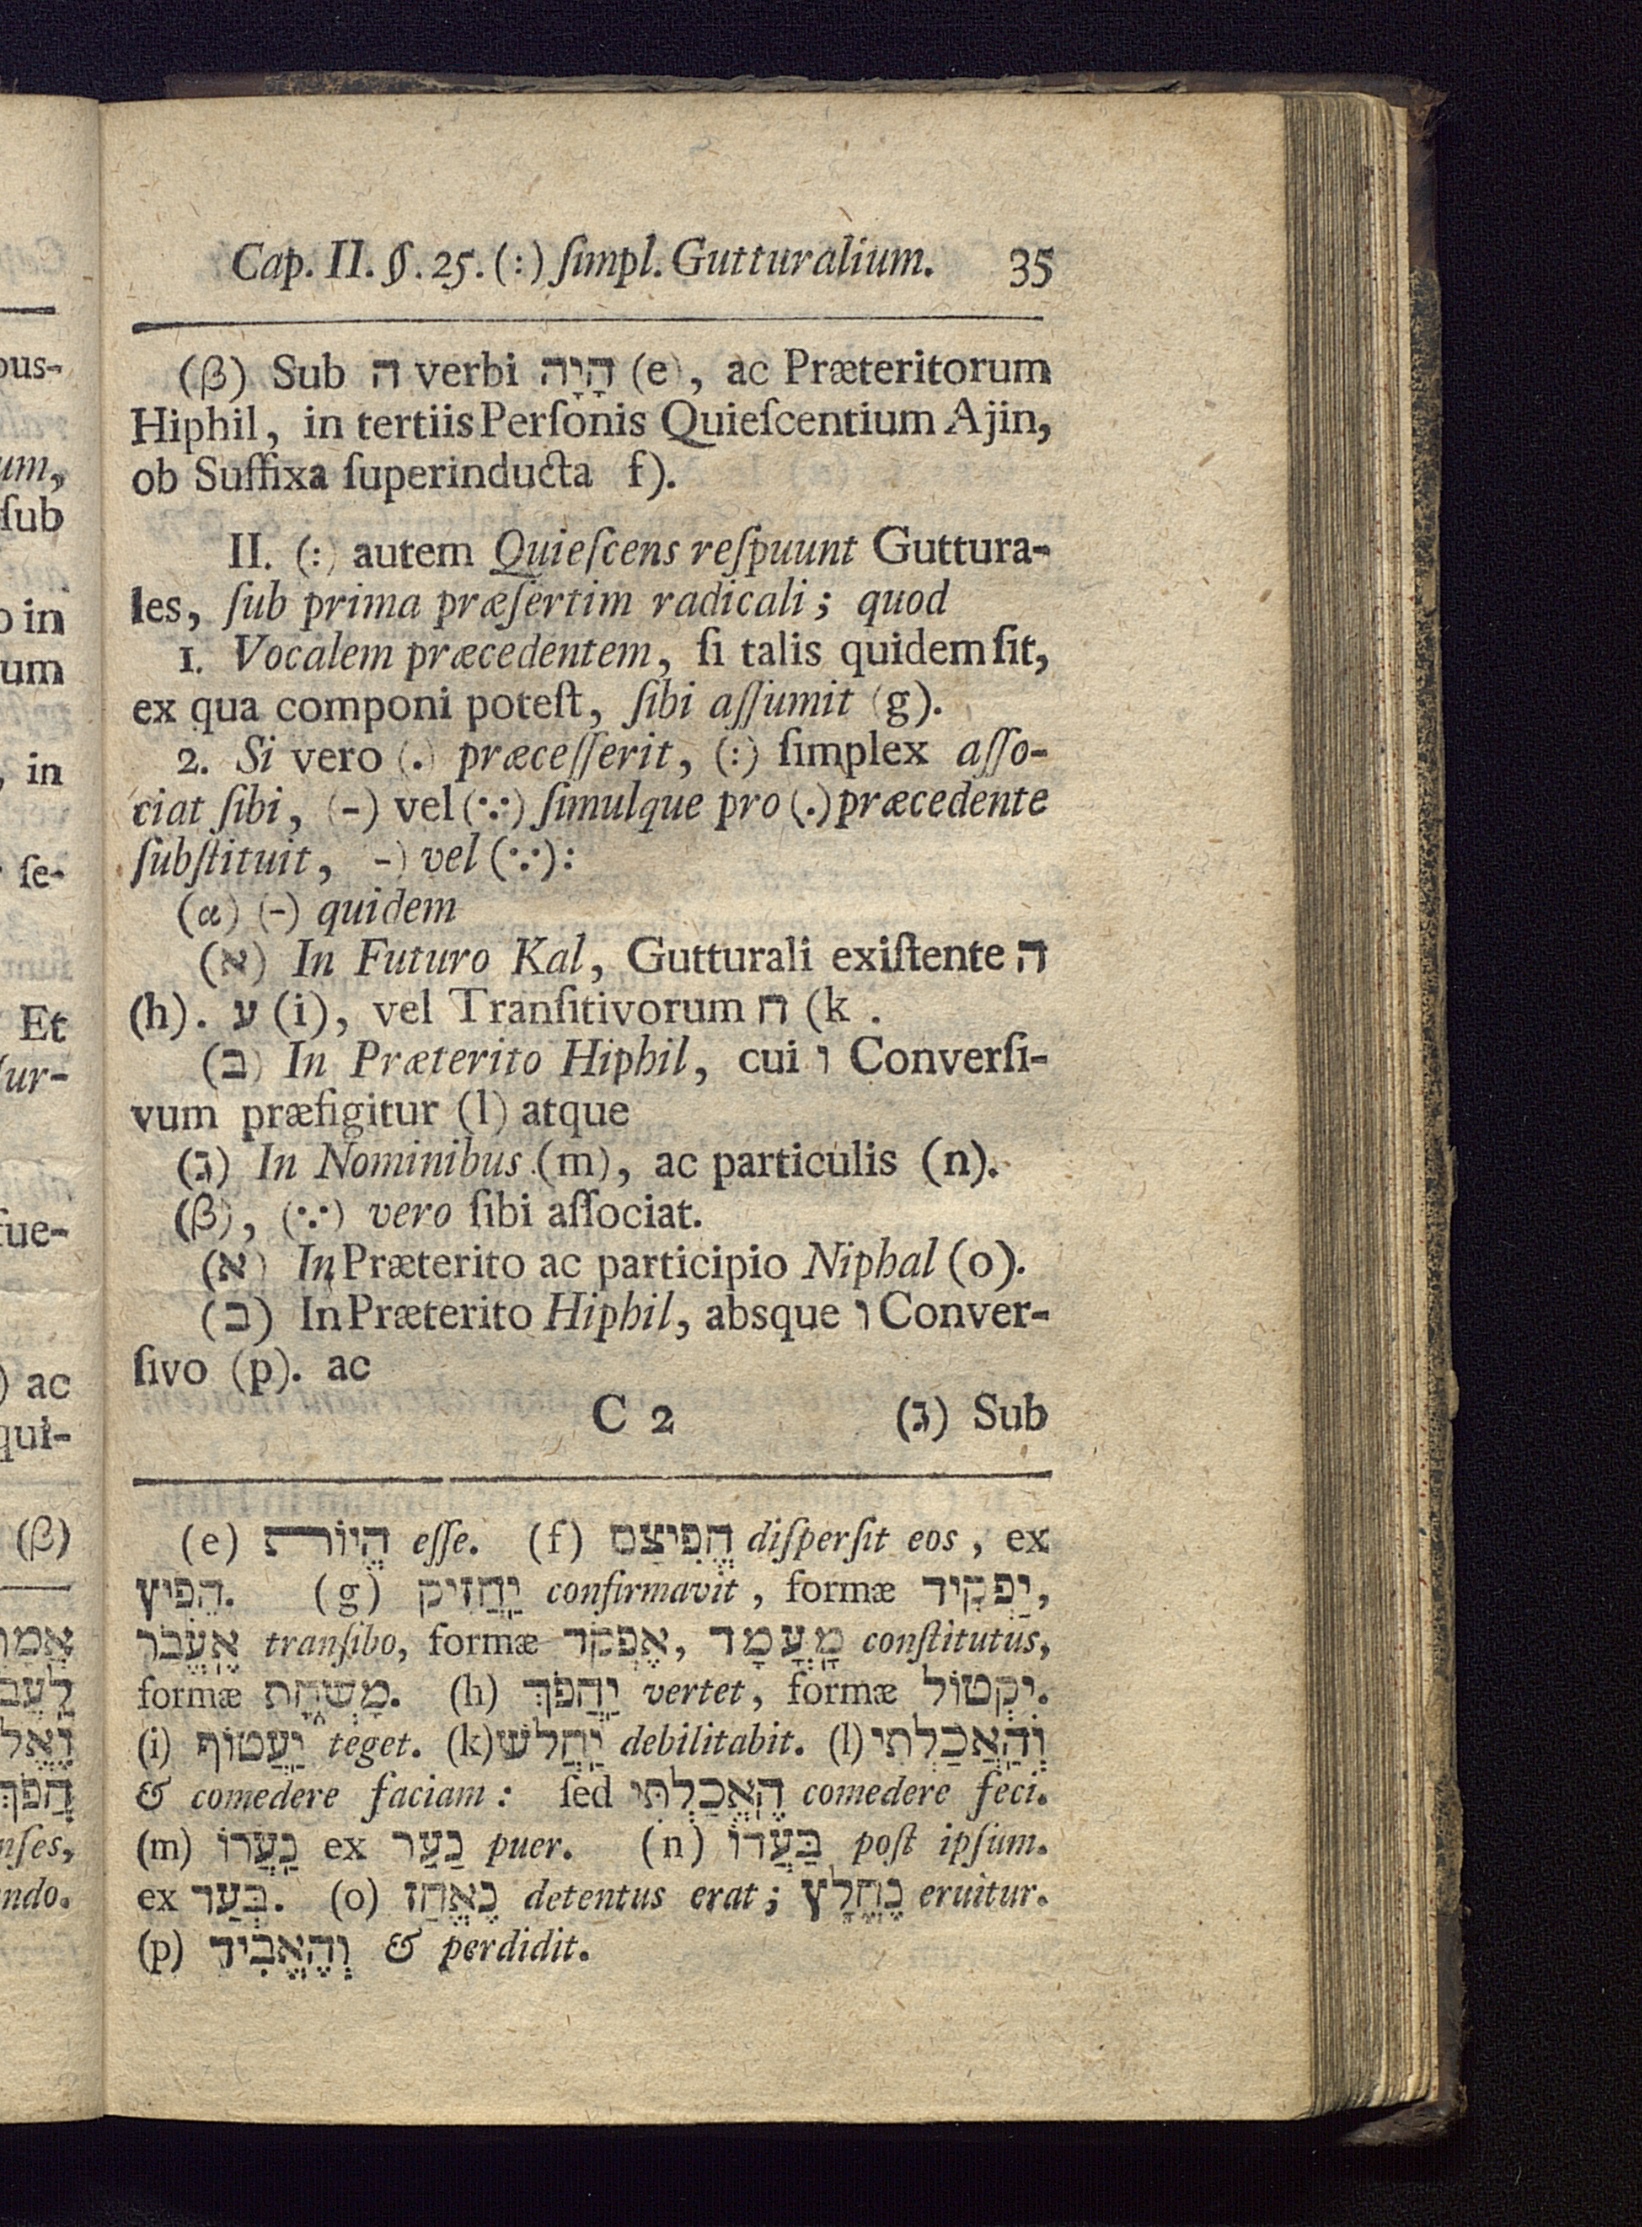 Cap. II. §. 25. (:) ſimpl. Gutturalium. 35
(β) Sub ה verbi הָיָה (e), ac Præteritorum
Hiphil, in tertiis Perſonis Quieſcentium Ajin,
ob Suffixa ſuperinducta f).
II. (:) autem Quieſcens reſpuunt Guttura-
les, ſub prima præſertim radicali; quod
1. Vocalem præcedentem, ſi talis quidem ſit,
ex qua componi poteſt, ſibi aſſumit (g).
2. Si vero (.) præceſſerit, (:) ſimplex aſſo-
ciat ſibi, (-) vel (∵) ſimulque pro (.) præcedente
ſubſtituit, -) vel (∵):
(α) (-) quidem
(א) In Futuro Kal, Gutturali exiſtente ה
(h). ע (i), vel Tranſitivorum ח (k .
(ב) In Præterito Hiphil, cui ו Converſi-
vum præfigitur (l) atque
(ג) In Nominibus (m), ac particulis (n).
(β), (∵) vero ſibi aſſociat.
(א) In Præterito ac participio Niphal (o).
(ב) In Præterito Hiphil, absque ו Conver-
ſivo (p). ac
C 2 (ג) Sub
(e) הֱיוֹת eſſe. (f) הֱפִיצָם diſperſit eos, ex
הֵפִיץ. (g) יַחֲזִיק confirmavit, formæ יַפְקִיד,
אֶעֱבֹר transibo, formæ אֶפְקֹד, מָעֳמָד conſtitutus,
formæ מָשְׁחָת. (h) יַהֲפֹךְ vertet, formæ יִקְטוֹל.
(i) יַעֲטוֹף teget. (k) יַחֲלֹשׁ debilitabit. (l) וְהַאֲכַלְתִּי
& comedere faciam: ſed הֶאֱכַלְתִּי comedere feci.
(m) נַעֲרוֹ ex נַעַר puer. (n) בַּעֲדוֹ poſt ipſum.
ex בְּעַד. (o) נֶאֱחַז detentus erat; נֶחֱלָץ eruitur.
(p) וְהֶאֱבִיד & perdidit.